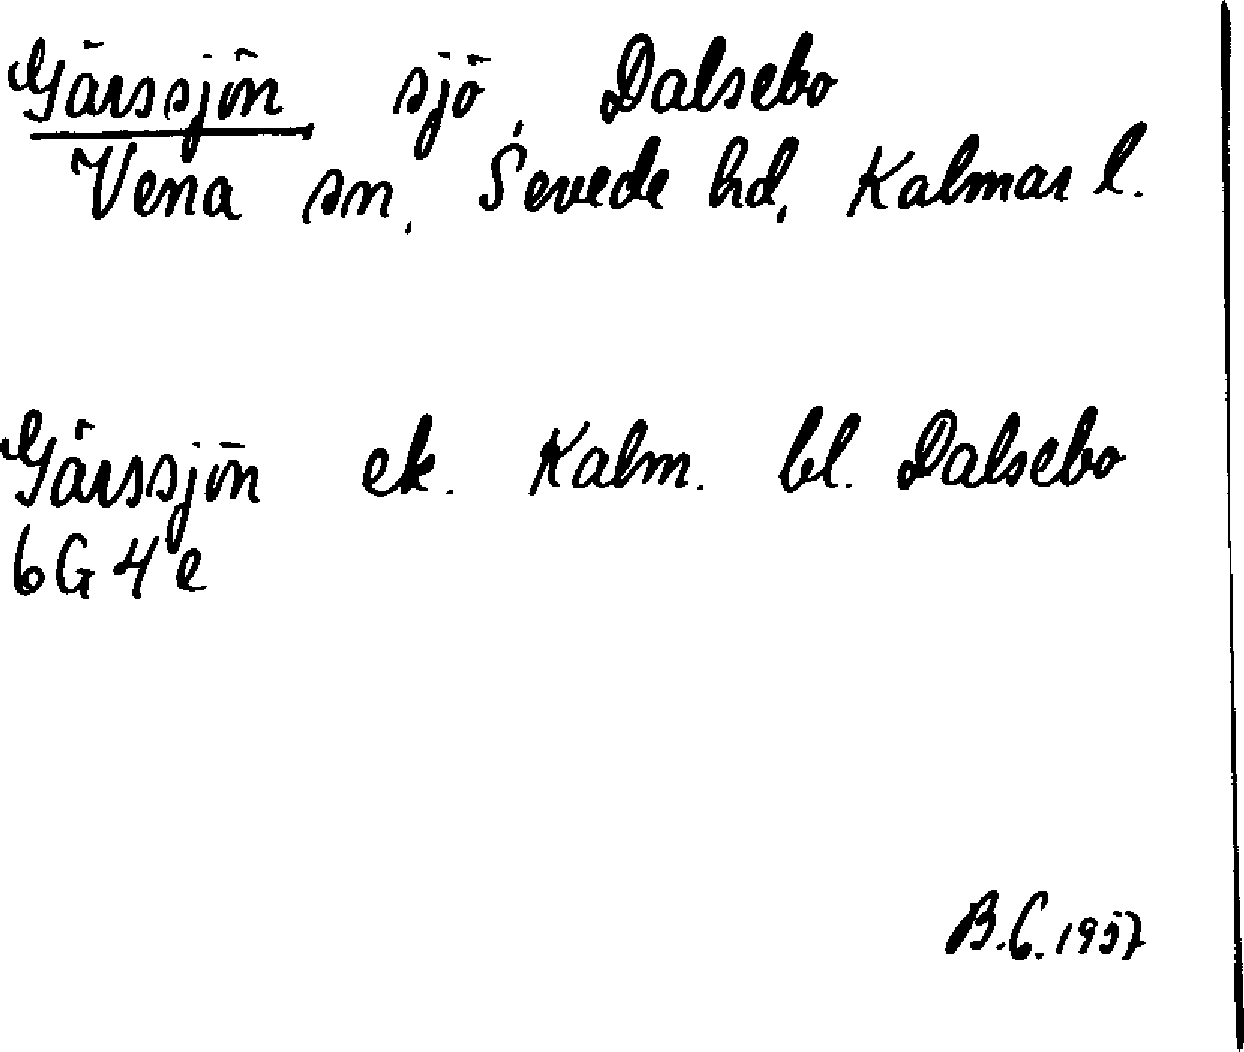 Gärssjön sjö, Dalsebo
Vena sn, Sevede hd, Kalmar l.
Gärssjön ek. Kalm. bl. Dalsebo
6G4e
B.C. 1957